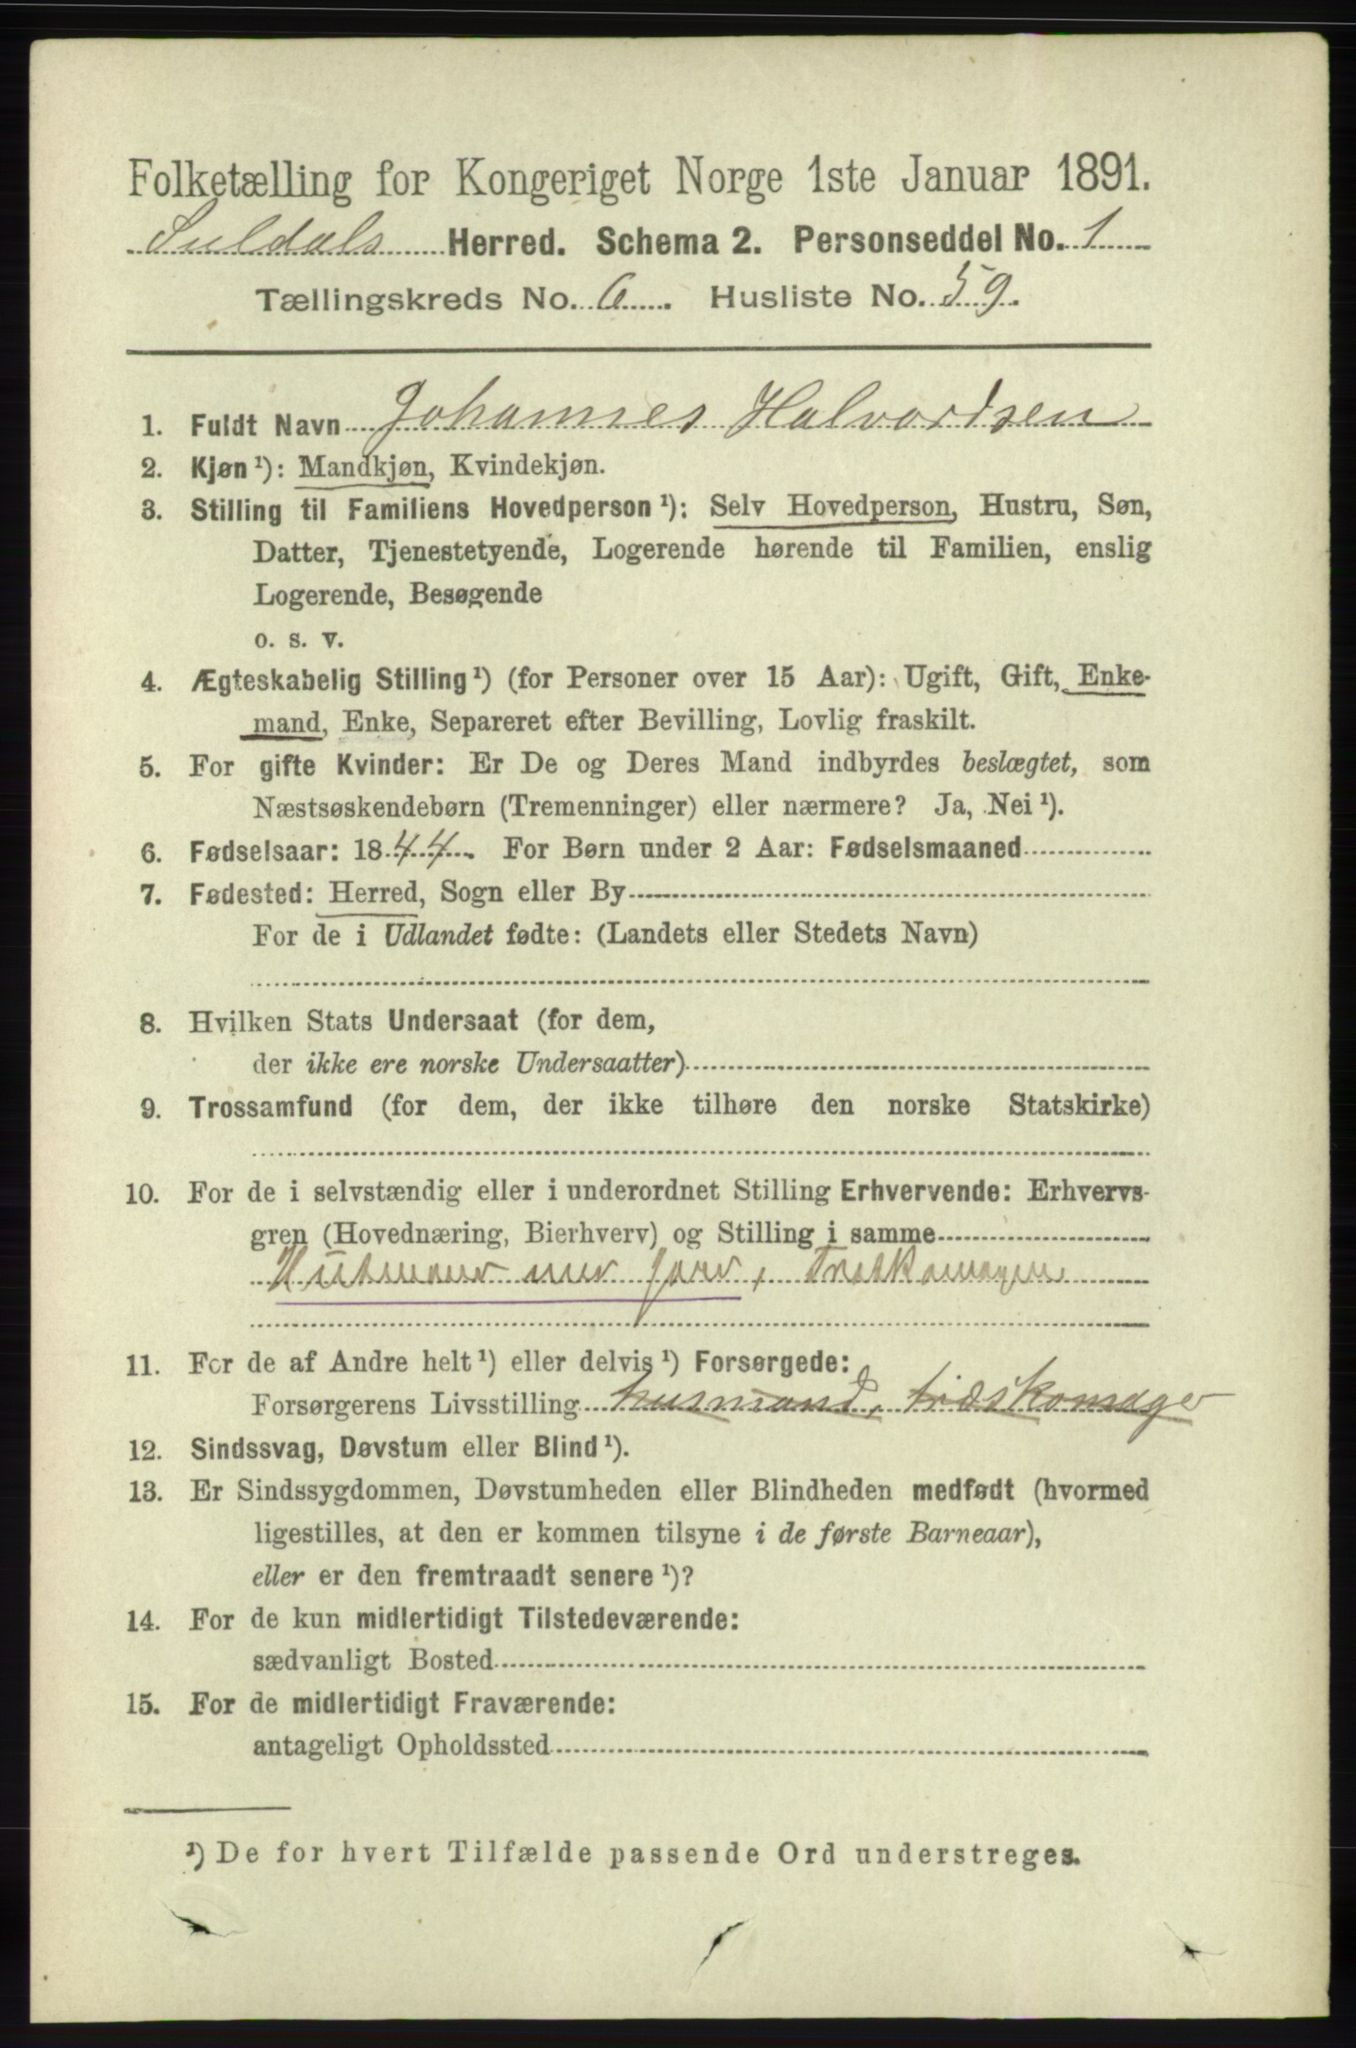 Folketælling for Kongeriget Norge 1ste Januar 1891.
Suldals Herred. Schema 2. Personseddel No. 1
Tællingskreds No. 6. Husliste No. 59.
1. Fuldt Navn Johannes Halvordsen
2. Kjøn ¹): Mandkjøn, Kvindekjøn.
3. Stilling til Familiens Hovedperson ¹): Selv Hovedperson, Hustru, Søn,
Datter, Tjenestetyende, Logerende hørende til Familien, enslig
Logerende, Besøgende
o. s. v.
4. Ægteskabelig Stilling ¹) (for Personer over 15 Aar): Ugift, Gift, Enke-
mand, Enke, Separeret efter Bevilling, Lovlig fraskilt.
5. For gifte Kvinder: Er De og Deres Mand indbyrdes beslægtet, som
Næstsøskendebørn (Tremenninger) eller nærmere? Ja, Nei ¹).
6. Fødselsaar: 1844. For Børn under 2 Aar: Fødselsmaaned
7. Fødested: Herred, Sogn eller By
For de i Udlandet fødte: (Landets eller Stedets Navn)
8. Hvilken Stats Undersaat (for dem,
der ikke ere norske Undersaatter)
9. Trossamfund (for dem, der ikke tilhøre den norske Statskirke)
10. For de i selvstændig eller i underordnet Stilling Erhvervende: Erhvervs-
gren (Hovednæring, Bierhverv) og Stilling i samme
Husmand med Jord,
11. For de af Andre helt ¹) eller delvis ¹) Forsørgede:
Forsørgerens Livsstilling husmand, træskomager
12. Sindssvag, Døvstum eller Blind ¹).
13. Er Sindssygdommen, Døvstumheden eller Blindheden medfødt (hvormed
ligestilles, at den er kommen tilsyne i de første Barneaar),
eller er den fremtraadt senere ¹)?
14. For de kun midlertidigt Tilstedeværende:
sædvanligt Bosted
15. For de midlertidigt Fraværende:
antageligt Opholdssted
¹) De for hvert Tilfælde passende Ord understreges.